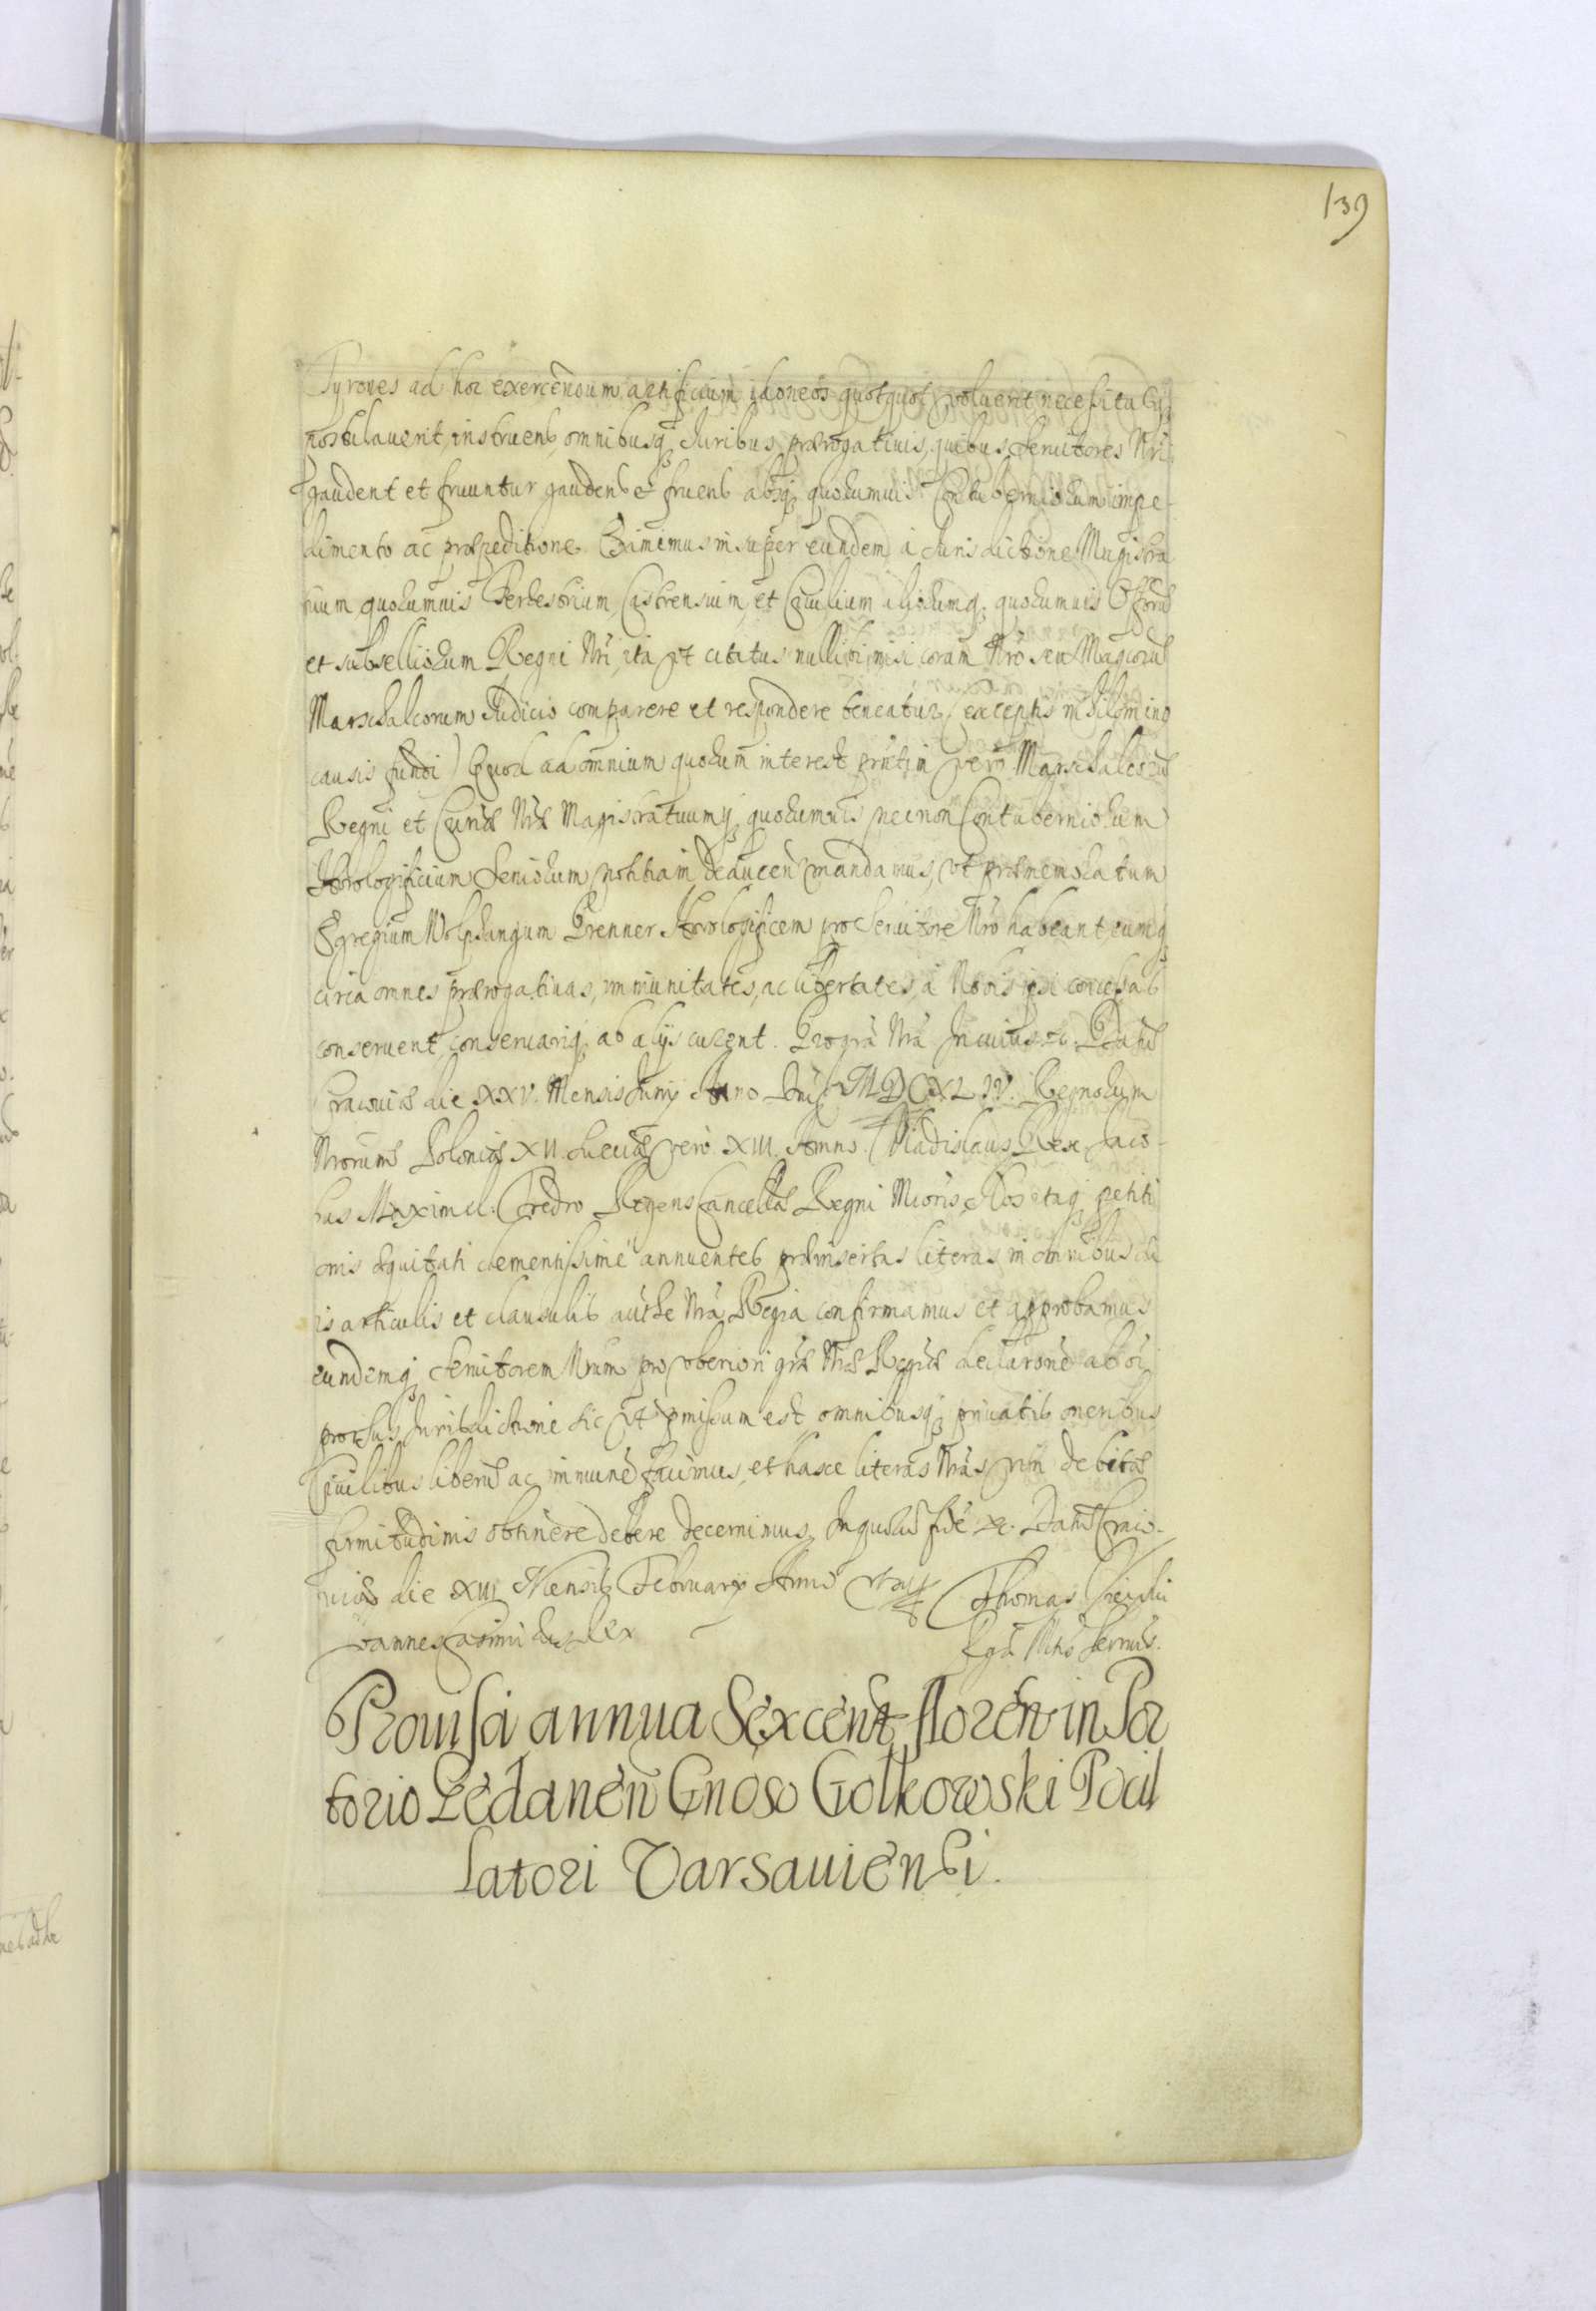 139
Tyrones ad hoc exercendum artificium idoneos quotquot voluerit necessitasq;
postulaverit, instruens, omnibusq; Juribus, praerogativis, quibus Servitores Nri
gaudent et fruuntur gaudens et fruens absq; quorumvis Contuberniorum impe-
dimento ac praepeditione. Eximimus insuper eundem à Jurisdictione Magistra
tuum quorumvis Terrestrium, Castrensium, et Civilium aliorumq; quorumvis
et subselliorum Regni Nri, ita vt citatus nullibi, nisi coram Nro seu Magcorum
Marschalcorum Judicio comparere et respondere teneatur (exceptis
causis fundi) Quod ad omnium quorum interest pntim vero Marschalcorum
Regni et Curiae Nrae Magistratuumq; quorumvis necnon Contuberniorum
Horologificium Seniorum notitiam deducen mandamus, vt praememoratum
Egregium Wolphangum Brenner Horologificem pro Servitore Nro habeant eumq;
circa omnes praerogativas, immunitates, ac libertates, à Nobis ipsi concessas
conservent, conservariq; ab alijs curent. Pro gra Nra In cuius rei. Datum
Cracoviae die XXV. Mensis Junij Anno Dni MDCXLIV. Regnorum
Nrorum Poloniae XII. Sueciae vero XIII. Anno. Vladislaus Rex Jaco-
bus Maximil: Fredro Regens Cancellae Regni Mioris. Nos itaq; petiti
onis aequitati clementissime annuentes praeinsertas literas in omnibus
is articulis et clausulis authe Nra Regia confirmamus et approbamus
eundemq; Servitorem Nrum pro vberiori grae Nrae Regiae declarone ab oi
prorsus Jurisdictione sic vt pmissum est, omnibusq; privatis oneribus
Civilibus liberum ac immune facimus, et hasce literas Nras vim debitae
firmitudinis obtinere debere decernimus. In quorum fide &c. Datum Craco-
viae die XIII Mensis February Anno vt supra Thomas
Joannes Casimirus Rex Regae Mtis Secrrius.
Provisa annua Sexcent floren in Por
torio Gedanen Gnoso Golkowski Pocil
latori Varsaviensi.